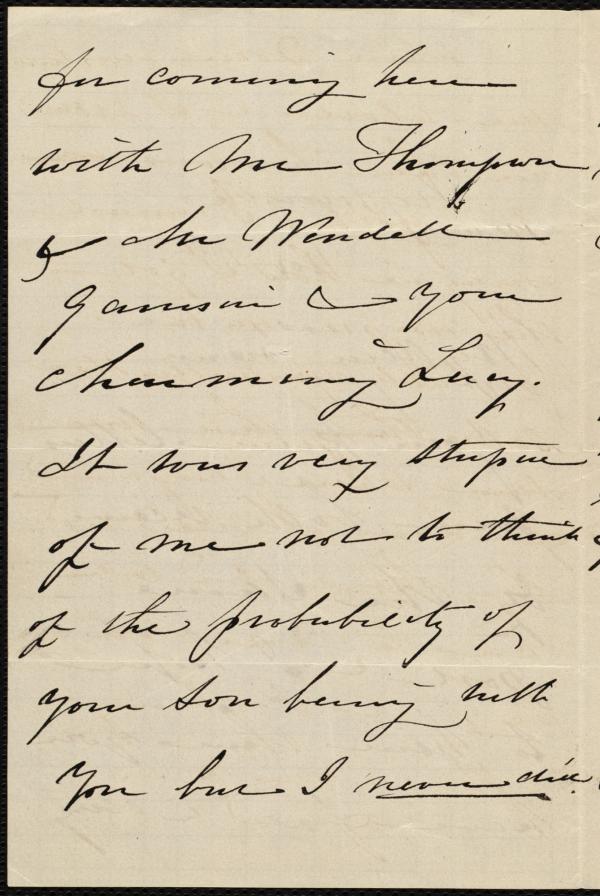 for coming here
with Mr Thompson,
& Mr Wendell
Garrison & your
charming Lucy.
It was very stupid
of me not to think
of the probability of
your son being with
you but I never did.